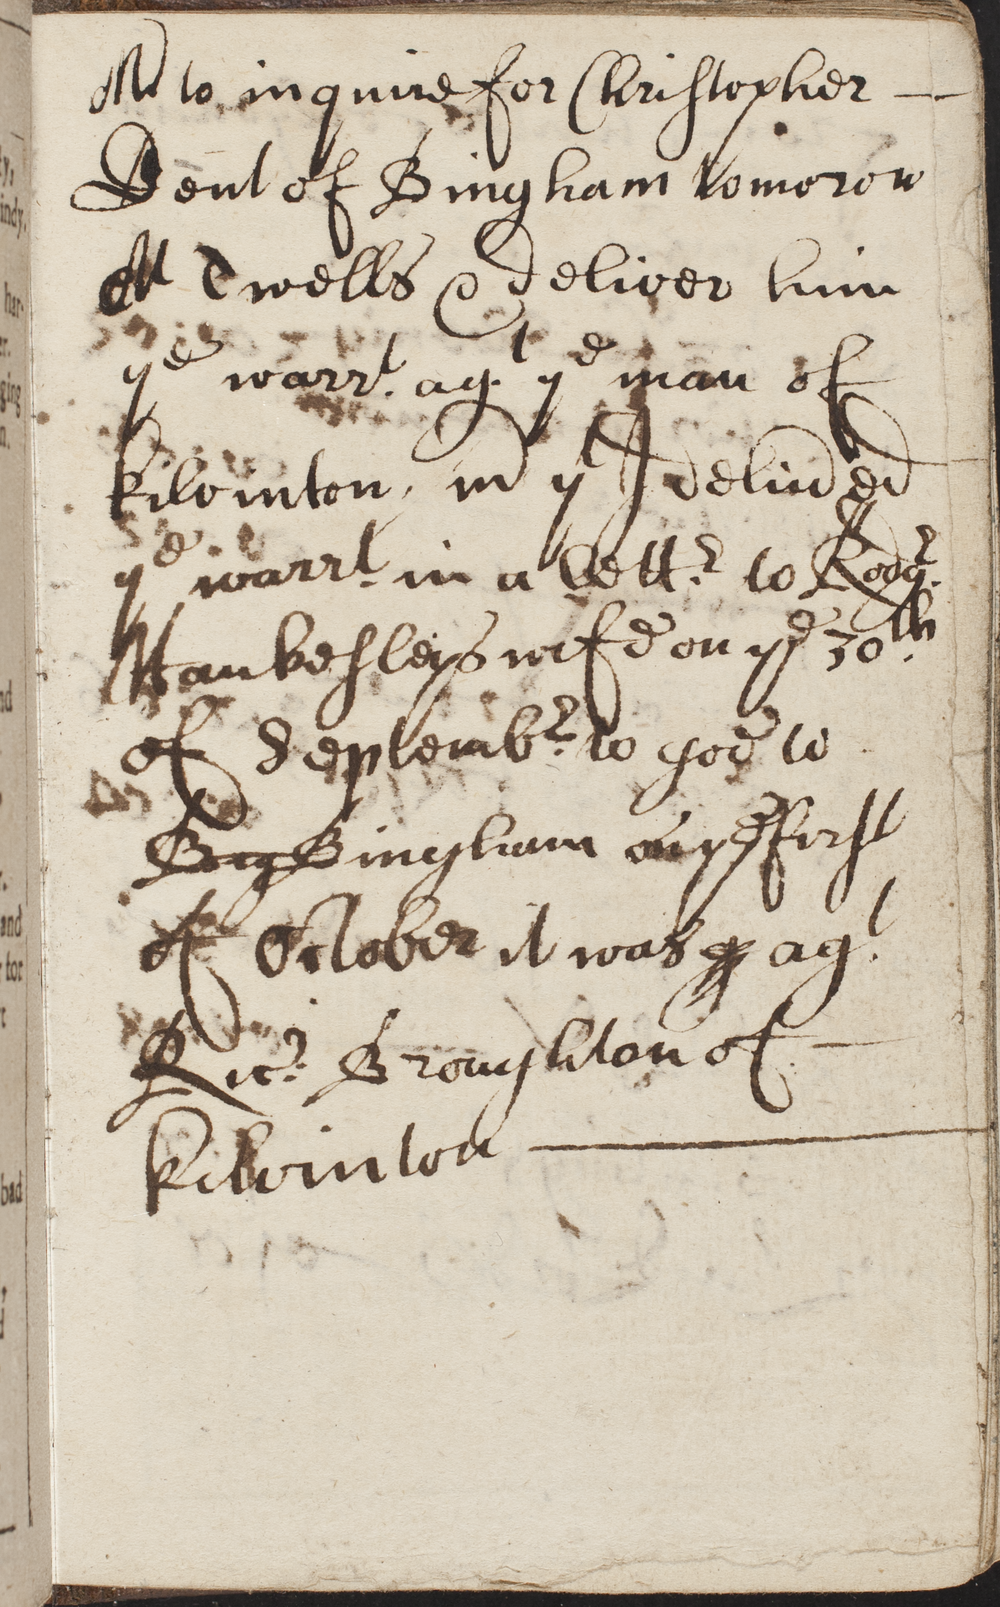 Md to inquire for Christopher —
Dent of Bingham tomorow
At wells & deliver him
ye warrt. agt. ye man of
kilvinton, md yt I deliv'ed
ye warrt. in a lettr. to Rodgr.
Haukesleys wife on ye 30th.
of Septembr. to goe to
Big Bingham on ye first
of October it was agt.
Ricr. Broughton of —
kilvinton —